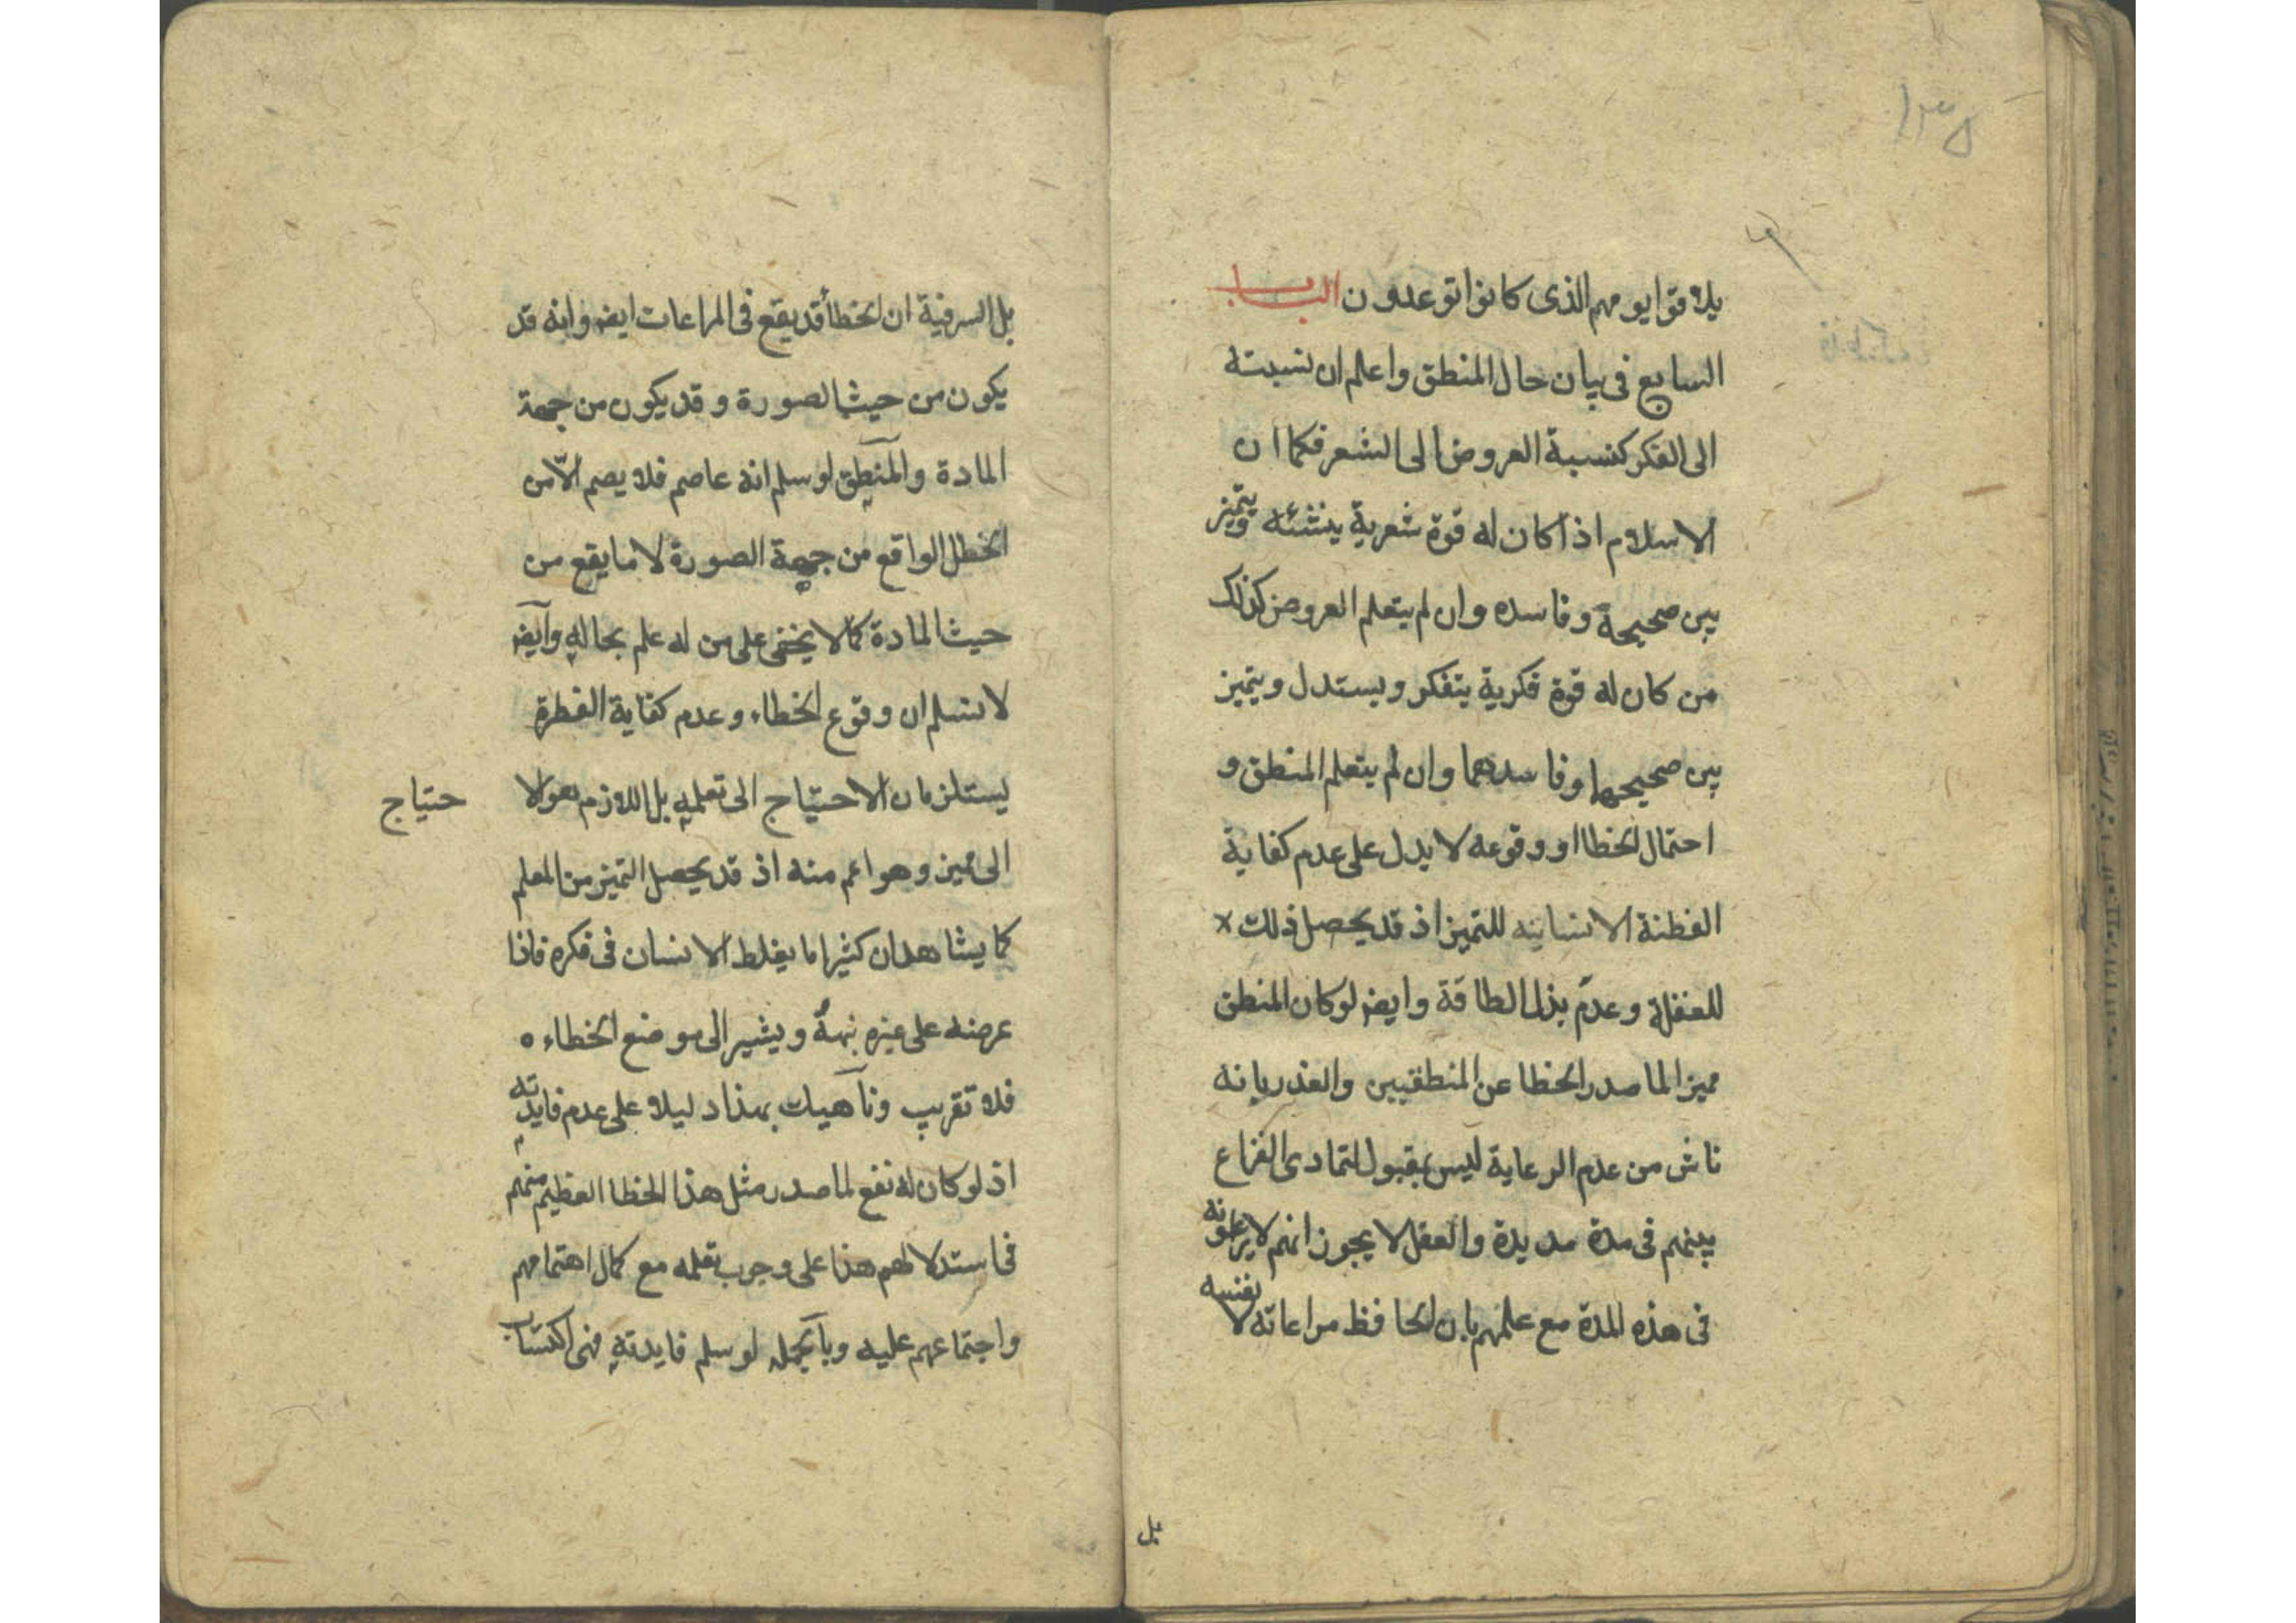 ١٣٥
يلاقوا يومهم الذى كانوا توعدون الباب
السابع فى بيان حال المنطق واعلم ان نسبته
الى الفكر كنسبة العروض الى الشعر فكما ان
الاسلام اذا كان له قوة شعرية ينشئه ويتميز
بين صحيحة وفاسده وان لم يتعلم العروض كذلك
من كان له قوة فكرية يتفكر ويستدل ويتميز
بين صحيحها وفاسدهما وان لم يتعلم المنطق و
احتمال الخطا او وقوعه لا يدل على عدم كفاية
الفطنة الانسانيه للتميز اذ قد يحصل ذلك
للغفلة وعدم بذل الطاقة وايضا لو كان المنطق
مميزا لما صدر الخطا عن المنطقيين والعذر بانه
ناش من عدم الرعاية ليس بمقبول لتمادى النزاع
بينهم فى مدة مديدة والعقل لا يجوز انهم لا يرعونه
فى هذه المدة مع علمهم بان الحافظ مراعاته لا نفسه
بل
بل السر فية ان الخطأ قد يقع فى المراعات ايضا وانه قد
يكون من حيث الصورة وقد يكون من جهة
المادة والمنطق لو سلم انه عاصم فلا يصم الّا من
الخطل الواقع من جهة الصورة لا ما يقع من
حيث المادة كما لا يخفى على من له علم بحاله وايضا
لا نسلم ان وقوع الخطاء وعدم كفاية الفطرة
يستلزمان الاحتياج الى تعلمه بل اللازم هو الا
حتياج
الى مميز وهو اعم منه اذ قد يحصل التميز من المعلم
كما يشاهد ان كثيرا ما يغلط الانسان فى فكره فاذا
عرضنه على غيره نبهه ويشير الى موضع الخطاء ه
فلا تقريب وناهيك بهذا دليلا على عدم فايدته
اذ لو كان له نفع لما صدر مثل هذا الخطا العظيم منهم
فى استدلالهم هذا على وجوب تعلمه مع كمال اهتمامهم
واجتماعهم عليه وبالجمله لو سلم فايدته فهى اكتساب